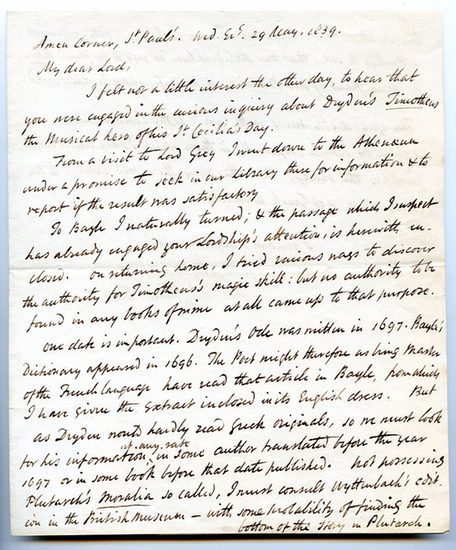 Amen Corner, St Paul's. Wed. Eg. 29 May. 1839.
My dear Lord,
I felt not a little interest the other day, to hear that
you were engaged in the curious inquiry about Dryden's Timotheus
the Musical hero of his St Cecilia's Day.
From a visit to Lord Grey I went down to the Athenæum
under a promise to seek in our Library there for information & to
report if the result was satisfactory
To Bayle I naturally turned; & the passage which I suspect
has already engaged your Lordship's attention, is herewith in-
closed. On returning home, I tried various ways to discover
the authority for Timotheus's magic skill: but no authority to be
found in any books of mine at all came up to that purpose.
One date is important. Dryden's Ode was written in 1697. Bayle's
Dictionary appeared in 1696. The Poet might therefore as being Master
of the French language have read that article in Bayle, from which
I have given the Extract inclosed in its English dress. But
as Dryden would hardly read Greek originals, so we must look
for his information, at any rate in some author translated before the year
1697 or in some book before that date published. Not possessing
Plutarch's Moralia so called, I must consult Wyttenbach's edit-
ion in the British Museum — with some probability of finding the
bottom of the story in Plutarch.